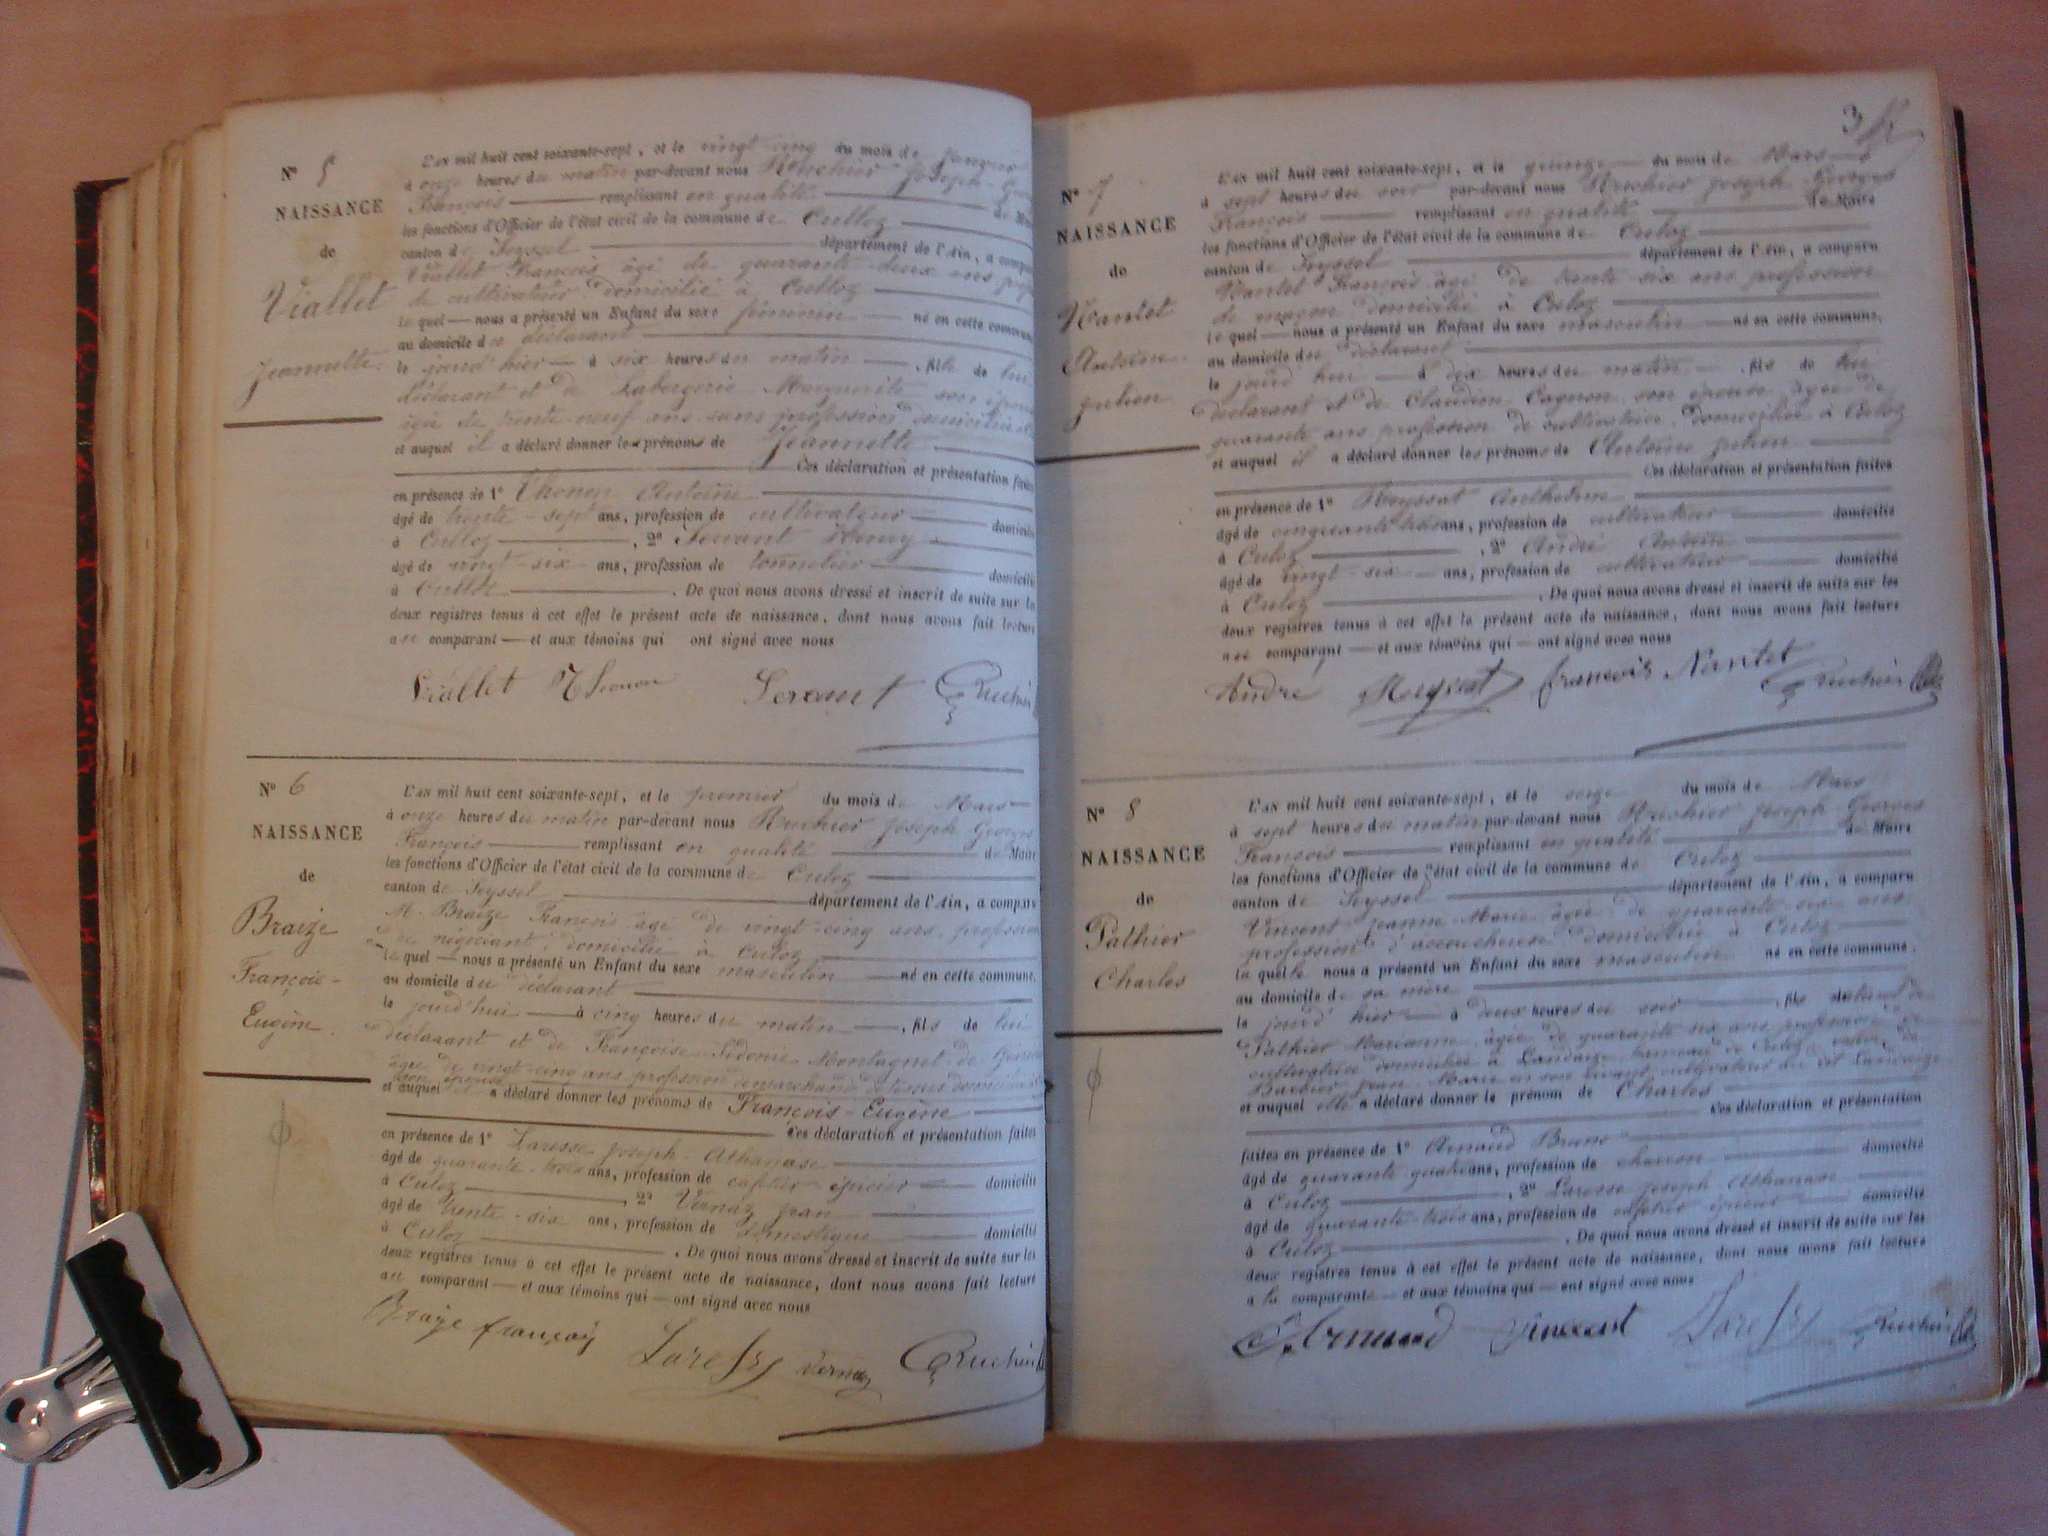 Nº 5
NAISSANCE
de
Viallet
Jeannette
L'AN mil huit cent soixante-sept, et le vingt cinq du mois de Janvier
à onze heures du matin par-devant nous Ruchier Joseph-Georges
François remplissant en qualité de Maire
les fonctions d'Officier de l'état civil de la commune de Culloz
canton de Seyssel département de l'Ain, a comparu
Viallet François âgé de quarante-deux ans
de cultivateur domicilié à Culloz
le quel nous a présenté un Enfant du sexe féminin né en cette commune
au domicile du déclarant
le jourd'hier à six heures du matin, fille de lui
déclarant et de Labergerie Marguerite son épouse
âgée de trente-neuf ans sans profession domiciliée
et auquel il a déclaré donner les prénoms de Jeannette
Ces déclaration et présentation faites
en présence de 1º Thonon Antoine
âgé de trente-sept ans, profession de cultivateur domicilié
à Culloz, 2º Servant
âgé de vingt-six ans, profession de tonnelier domicilié
à Culloz. De quoi nous avons dressé et inscrit de suite sur les
deux registres tenus à cet effet le présent acte de naissance, dont nous avons fait lecture
au comparant et aux témoins qui ont signé avec nous
Viallet Thonon Servant Ruchier
Nº 6
NAISSANCE
de
Braize
François-
Eugène.
L'AN mil huit cent soixante-sept, et le premier du mois de Mars
à onze heures du matin par-devant nous Ruchier Joseph Georges
François remplissant en qualité de Maire
les fonctions d'Officier de l'état civil de la commune de Culoz
canton de Seyssel département de l'Ain, a comparu
M. Braize François âgé de vingt-cinq ans, profession
de négociant, domicilié à Culoz
le quel nous a présenté un Enfant du sexe masculin né en cette commune,
au domicile du déclarant
le jourd'hui à cinq heures du matin, fils de lui
déclarant et de Françoise-Sidonie Montagnet de
âgée de vingt-cinq ans profession de marchande
son épouse
et auquel il a déclaré donner les prénoms de François-Eugène
Ces déclaration et présentation faites
en présence de 1º Laresse Joseph-Athanase
âgé de quarante-trois ans, profession de cafetier épicier domicilié
à Culoz, 2º Vernaz Jean
âgé de trente-six ans, profession de domestique domicilié
à Culoz. De quoi nous avons dressé et inscrit de suite sur les
deux registres tenus à cet effet le présent acte de naissance, dont nous avons fait lecture
au comparant et aux témoins qui ont signé avec nous
Braize françois Laresse Vernaz Ruchier
3
Nº 7
NAISSANCE
de
Nantet
Antoine
Julien
L'AN mil huit cent soixante-sept, et le quinze du mois de Mars à
à sept heures du soir par-devant nous Ruchier Joseph Georges
François remplissant en qualité de Maire
les fonctions d'Officier de l'état civil de la commune de Culoz
canton de Seyssel département de l'Ain, a comparu
Nantet François âgé de trente-six ans profession
de maçon domicilié à Culoz
le quel nous a présenté un Enfant du sexe masculin né en cette commune,
au domicile du déclarant
le jourd'hui à dix heures du matin, fils de lui
déclarant et de Claudine Cagnon son épouse âgée de
quarante ans profession de cultivatrice domiciliée à Culoz
et auquel il a déclaré donner les prénoms de Antoine Julien
Ces déclaration et présentation faites
en présence de 1º Anthelme
âgé de cinquante ans, profession de cultivateur domicilié
à Culoz, 2º André Antoine
âgé de vingt-six ans, profession de cultivateur domicilié
à Culoz. De quoi nous avons dressé et inscrit de suite sur les
deux registres tenus à cet effet le présent acte de naissance, dont nous avons fait lecture
au comparant et aux témoins qui ont signé avec nous
André françois Nantet Ruchier
Nº 8
NAISSANCE
de
Pathier
Charles
L'AN mil huit cent soixante-sept, et le seize du mois de Mars
à sept heures du matin par-devant nous Ruchier Joseph Georges
François remplissant en qualité de Maire
les fonctions d'Officier de l'état civil de la commune de Culoz
canton de Seyssel département de l'Ain, a comparu
Vincent Jeanne-Marie âgée de quarante-six ans
profession d'accoucheuse domiciliée à Culoz
la quelle nous a présenté un Enfant du sexe masculin né en cette commune,
au domicile de sa mère
le jourd'hier à deux heures du soir, fils naturel de
Pathier Marianne âgée de quarante six ans profession de
cultivatrice domiciliée à Landaize hameau de Culoz, veuve de
Barbier Jean-Marie en son vivant cultivateur du dit Landaize
et auquel elle a déclaré donner le prénom de Charles
Ces déclaration et présentation
faites en présence de 1º Arnaud Bruno
âgé de quarante quatre ans, profession de charron domicilié
à Culoz, 2º Laresse Joseph Athanase
âgé de quarante-trois ans, profession de cafetier épicier domicilié
à Culoz. De quoi nous avons dressé et inscrit de suite sur les
deux registres tenus à cet effet le présent acte de naissance, dont nous avons fait lecture
à la comparante et aux témoins qui ont signé avec nous
Arnaud Vincent Laresse Ruchier